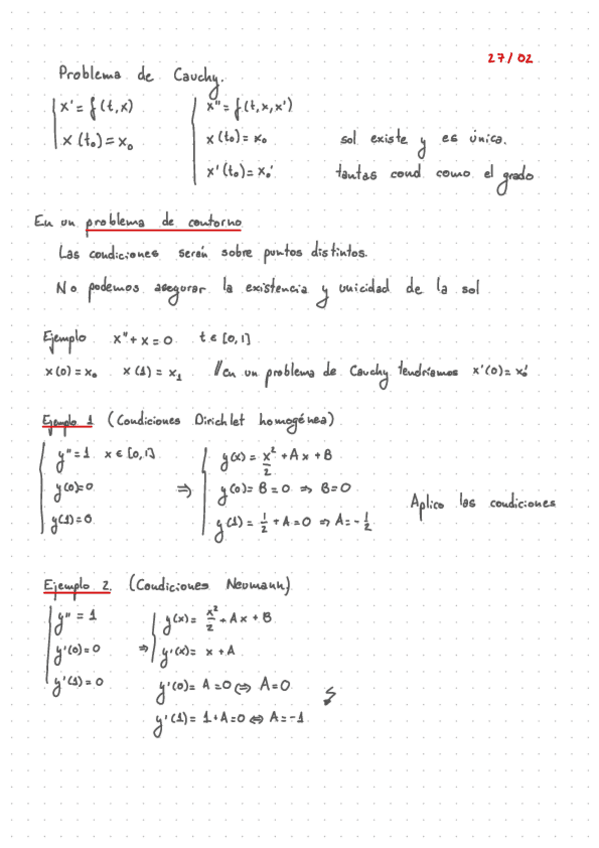 27/02
Problema de Cauchy.
x' = f(t,x)    x'' = f(t,x,x')
x(t₀) = x₀    x(t₀) = x₀    sol existe y es única.
x'(t₀) = x₀'    tantas cond como el grado
En un problema de contorno
Las condiciones serán sobre puntos distintos.
No podemos asegurar la existencia y unicidad de la sol
Ejemplo x'' + x = 0 t ∈ [0,1]
x(0) = x₀ x(1) = x₁ //en un problema de Cauchy tendríamos x'(0) = x₀'
Ejemplo 1 (Condiciones Dirichlet homogénea)
y'' = 1 x ∈ [0,1]    y(x) = x²/2 + Ax + B
y(0) = 0 ⇒ y(0) = B = 0 ⇒ B = 0    Aplico las condiciones
y(1) = 0    y(1) = 1/2 + A = 0 ⇒ A = -1/2
Ejemplo 2. (Condiciones Neumann)
y'' = 1    y(x) = x²/2 + Ax + B
y'(0) = 0 ⇒ y'(x) = x + A
y'(1) = 0    y'(0) = A = 0 ⇔ A = 0
y'(1) = 1 + A = 0 ⇔ A = -1